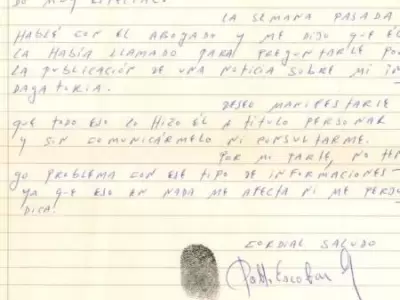 DO MUY ESPECIAL.
LA SEMANA PASADA
HABLÉ CON EL ABOGADO Y ME DIJO QUE ÉL
LA HABÍA LLAMADO PARA PREGUNTARLE POR
LA PUBLICACIÓN DE UNA NOTICIA SOBRE MI IN
DAGATORIA.
DESEO MANIFESTARLE
QUE TODO ESO LO HIZO ÉL A TITULO PERSONAL
Y SIN COMUNICÁRMELO NI CONSULTARME.
POR MI PARTE, NO TEN
GO PROBLEMA CON ESE TIPO DE INFORMACIONES
YA QUE ESO EN NADA ME AFECTA NI ME PERJU
DICA.
CORDIAL SALUDO
Pablo Escobar G